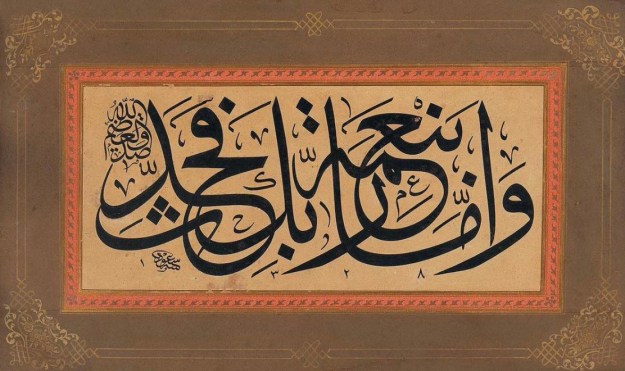 واما بنعمة ربك فحدث
صدق الله العظيم
١٣٢٨